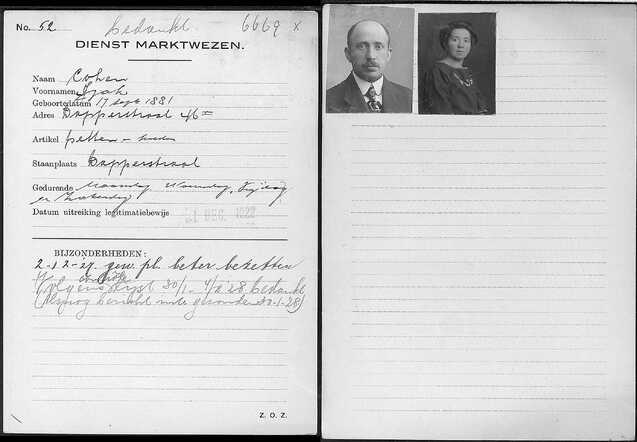 No. 52 bedankt 6669 x
DIENST MARKTWEZEN.
Naam Cohen
Voornamen Izak
Geboortedatum 17 sept 1881
Adres Dapperstraat 46
Artikel petten - hoeden
Staanplaats Dapperstraat
Gedurende Maandag, Woensdag, Vrijdag
en Donderdag
Datum uitreiking legitimatiebewijs DEC. 1922
BIJZONDERHEDEN:
2-12-27. gew. pl. beter bezetten
Volgens lijst 30/1 - 4/2 28 bedankt
30-1-28)
Z. O. Z.